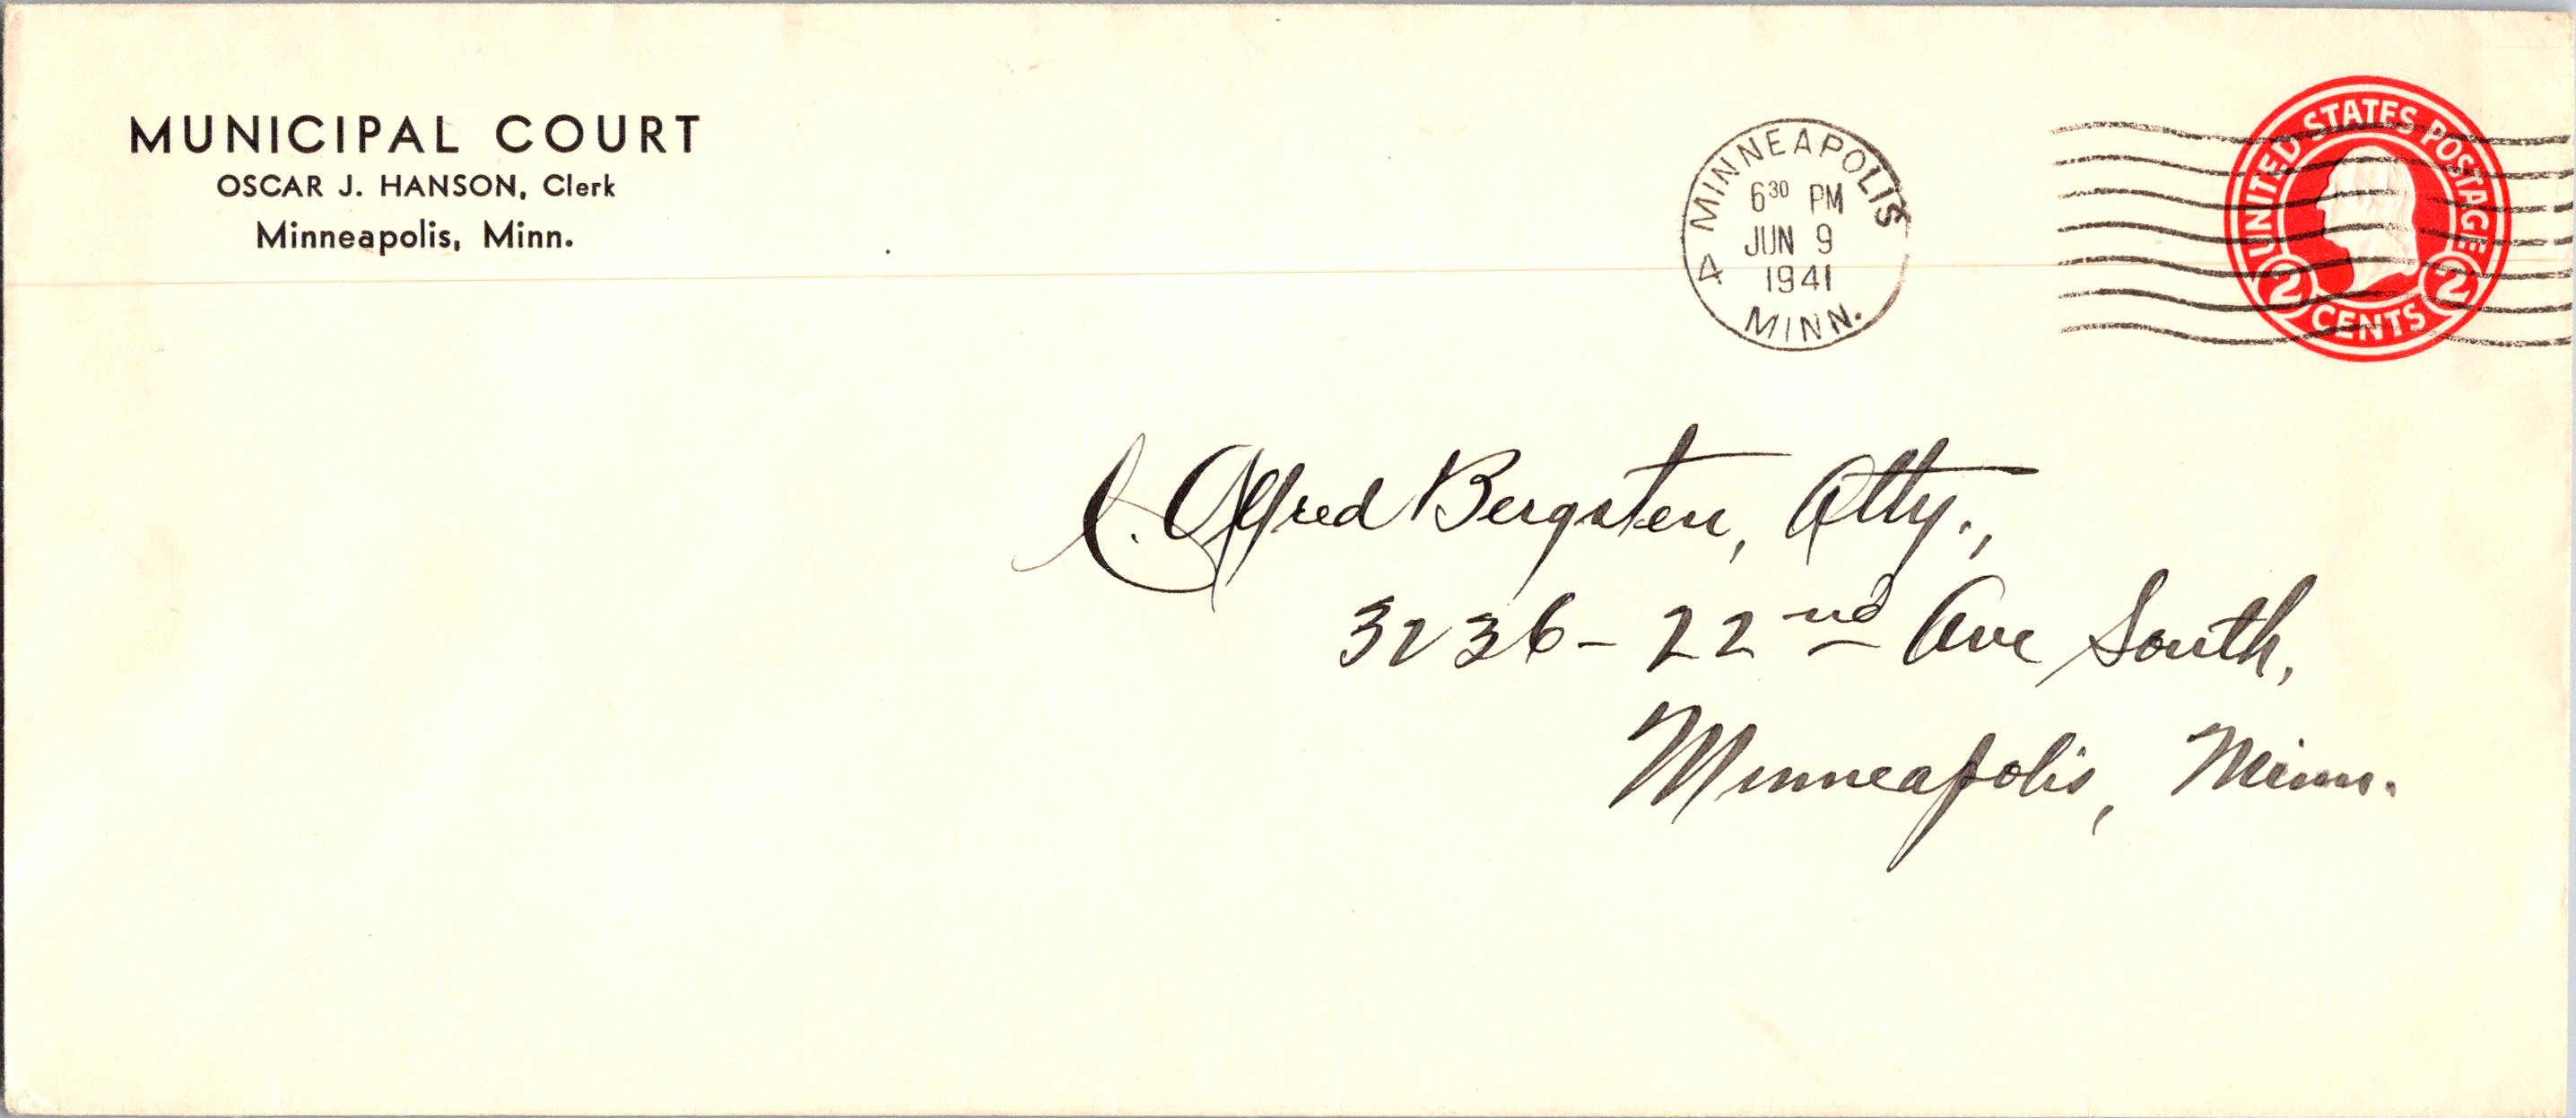 MUNICIPAL COURT
OSCAR J. HANSON, Clerk
Minneapolis, Minn.
MINNEAPOLIS
6³⁰ PM
JUN 9
1941
4
MINN.
UNITED STATES POSTAGE
2 2
CENTS
Alfred Bergsten, Atty.,
3236 - 22nd Ave South,
Minneapolis, Minn.